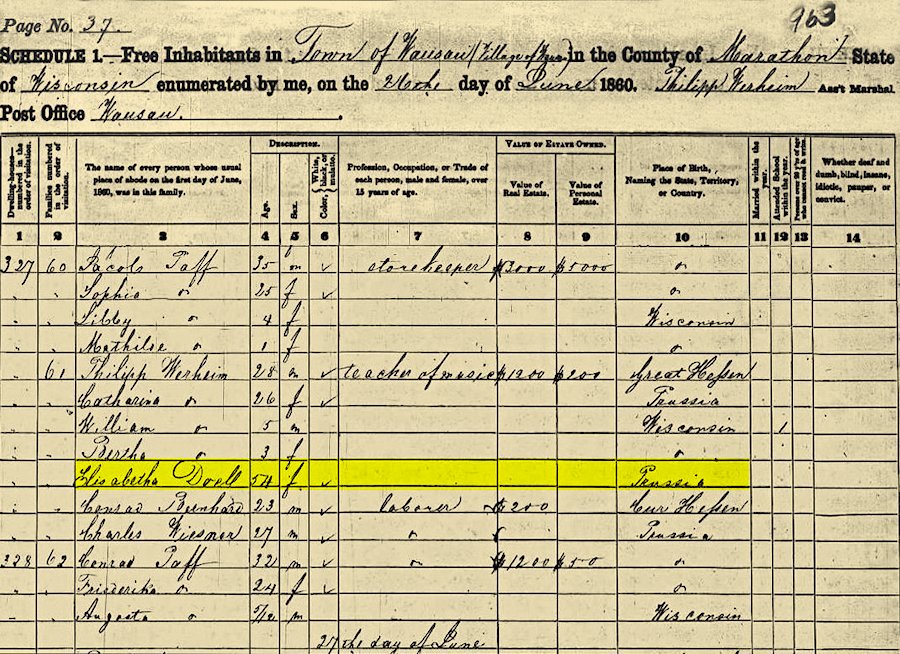 Page No. 37.
963
SCHEDULE 1.—Free Inhabitants in Town of Wausau (Village of in the County of Marathon State
of Wisconsin enumerated by me, on the day of June 1860. Philipp Werheim Ass't Marshal.
Post Office Wausau.
Dwelling-houses—numbered in the order of visitation.
Families numbered in the order of visitation.
The name of every person whose usual place of abode on the first day of June, 1860, was in this family.
DESCRIPTION.
Age.
Sex.
Color, White, black, or mulatto.
Profession, Occupation, or Trade of each person, male and female, over 15 years of age.
VALUE OF ESTATE OWNED.
Value of Real Estate.
Value of Personal Estate.
Place of Birth, Naming the State, Territory, or Country.
Married within the year.
Attended School within the year.
Persons over 20 y'rs of age who cannot read & write.
Whether deaf and dumb, blind, insane, idiotic, pauper, or convict.
1 2 3 4 5 6 7 8 9 10 11 12 13 14
327 60 Jacob Paff 35 m ✓ storekeeper $3000 $5000 "
" " Sophia " 25 f ✓ "
" " Libby " 4 f Wisconsin
" " Mathilde " 1 f "
" 61 Philipp Werheim 28 m ✓ teacher of music $1200 $200 Great Hessen
" " Catharina " 26 f ✓ Prussia
" " William " 5 m Wisconsin 1
" " Bertha " 3 f "
" " Elisabetha Doell 54 f ✓ Prussia
" " Conrad Bernhard 23 m ✓ laborer $200 Cur Hessen
" " Charles Wiesner 27 m ✓ " Prussia
328 62 Conrad Paff 32 m ✓ " $1200 $50 "
" " Friederika " 24 f ✓ "
" " Augusta " 5/12 m Wisconsin
27 the day of June